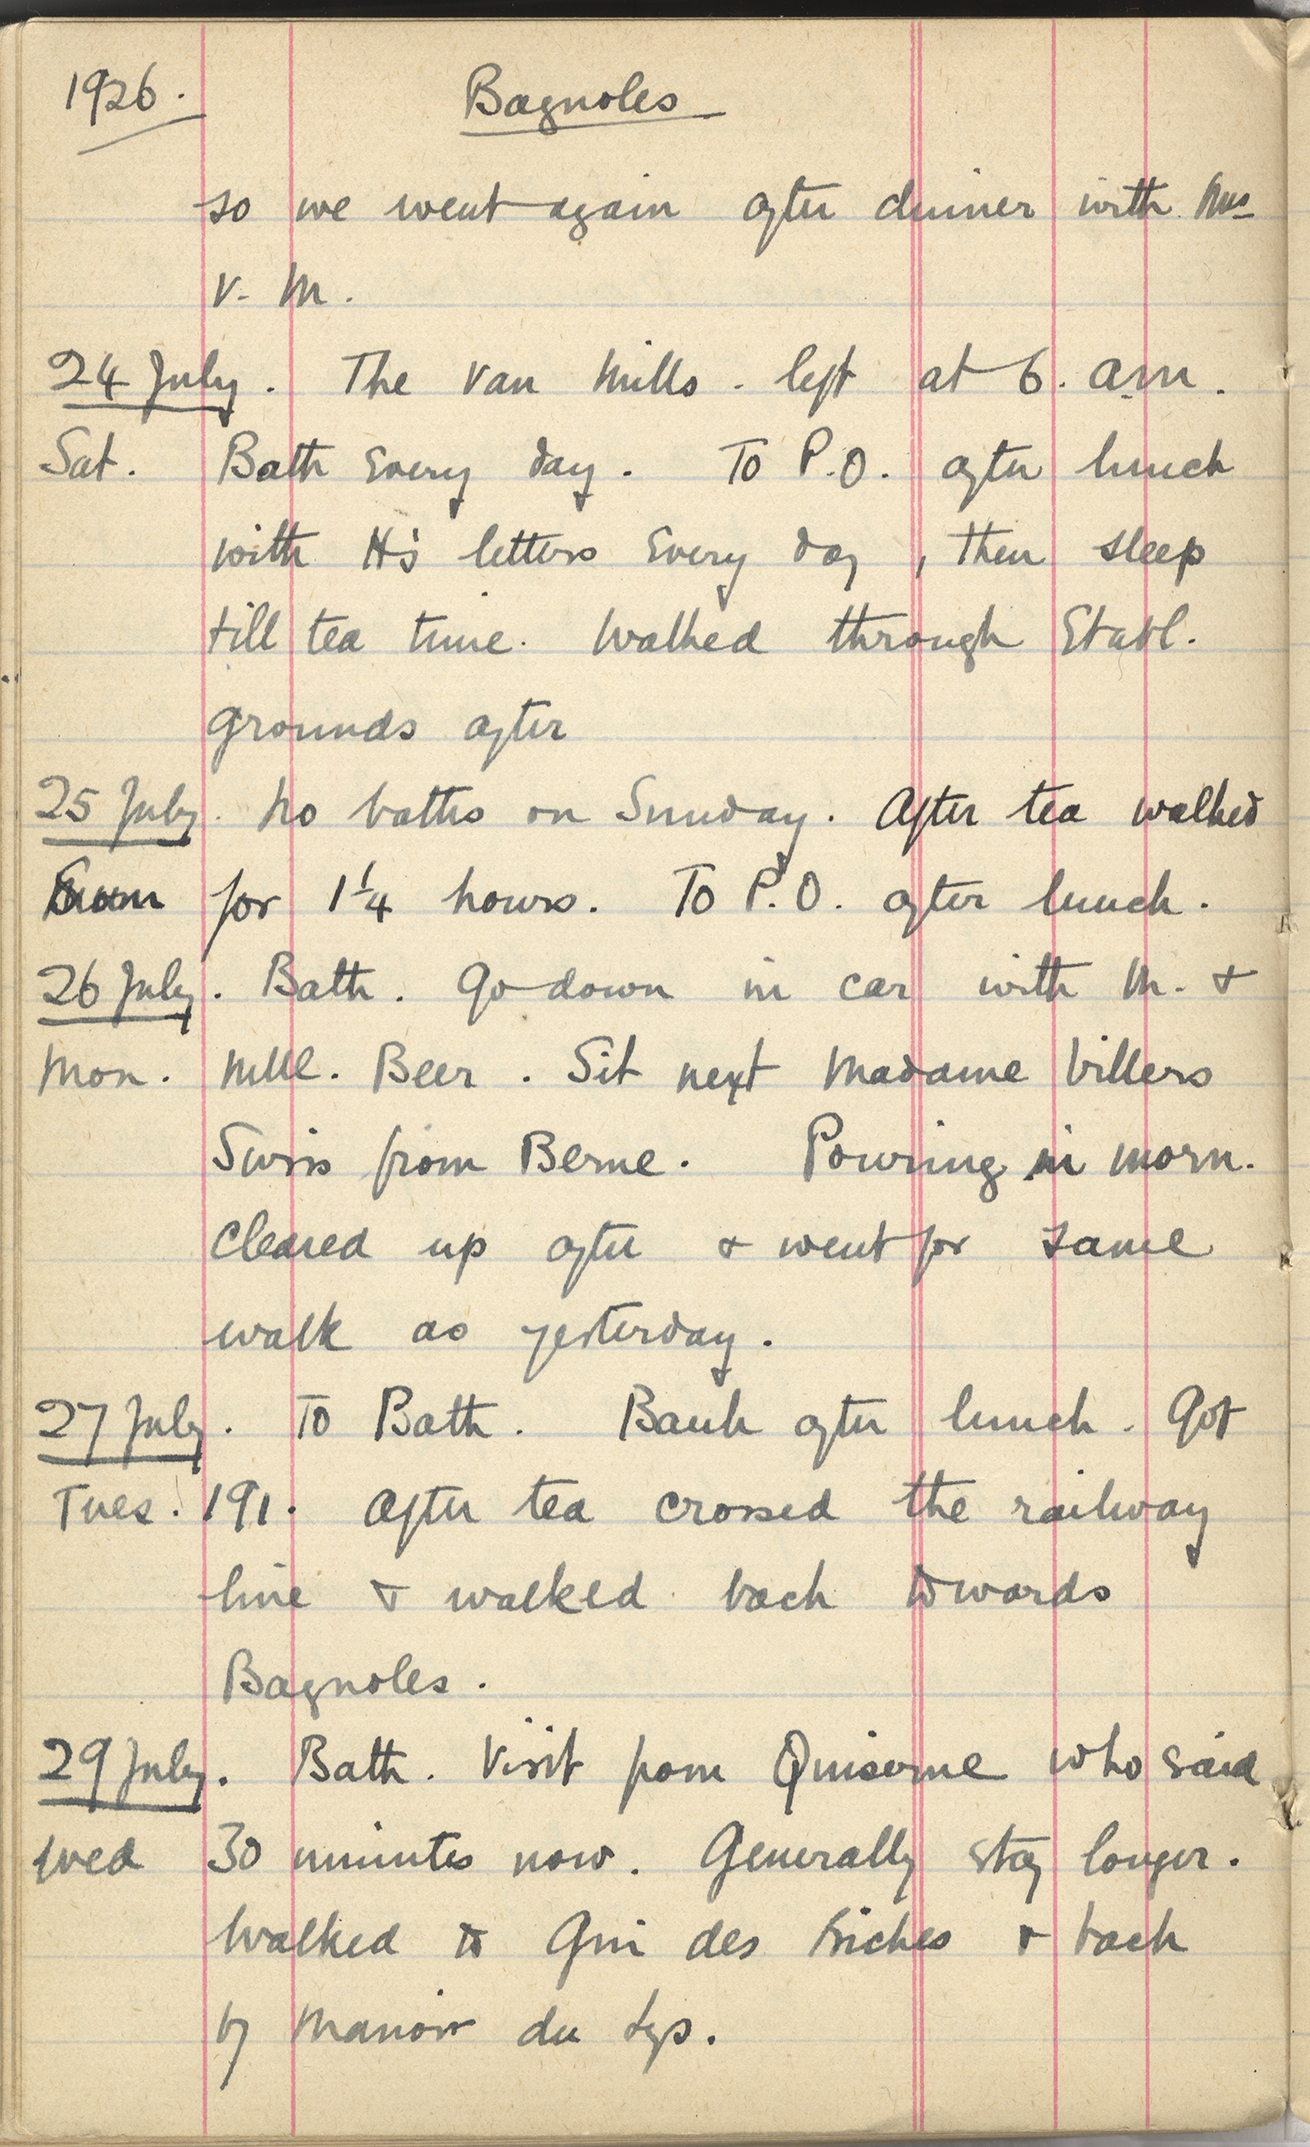 1926. Bagnoles
so we went again after dinner with Mrs
V. M.
24 July. The Van Mills. left at 6. a.m.
Sat. Bath every day. To P.O. after lunch
with H's letters every day, then sleep
till tea time. Walked through Etabl.
grounds after
25 July. No baths on Sunday. After tea walked
Sun for 1¼ hours. To P.O. after lunch.
26 July. Bath. Go down in car with M. &
Mon. Mlle. Beer. Sit next Madame Villers
Swiss from Berne. Pouring in morn.
Cleared up after & went for same
walk as yesterday.
27 July. To Bath. Bank after lunch. Got
Tues. 191. After tea crossed the railway
line & walked back towards
Bagnoles.
29 July. Bath. Visit from Quiserne who said
Wed 30 minutes now. Generally stay longer.
Walked to des & back
by Manoir du Lys.